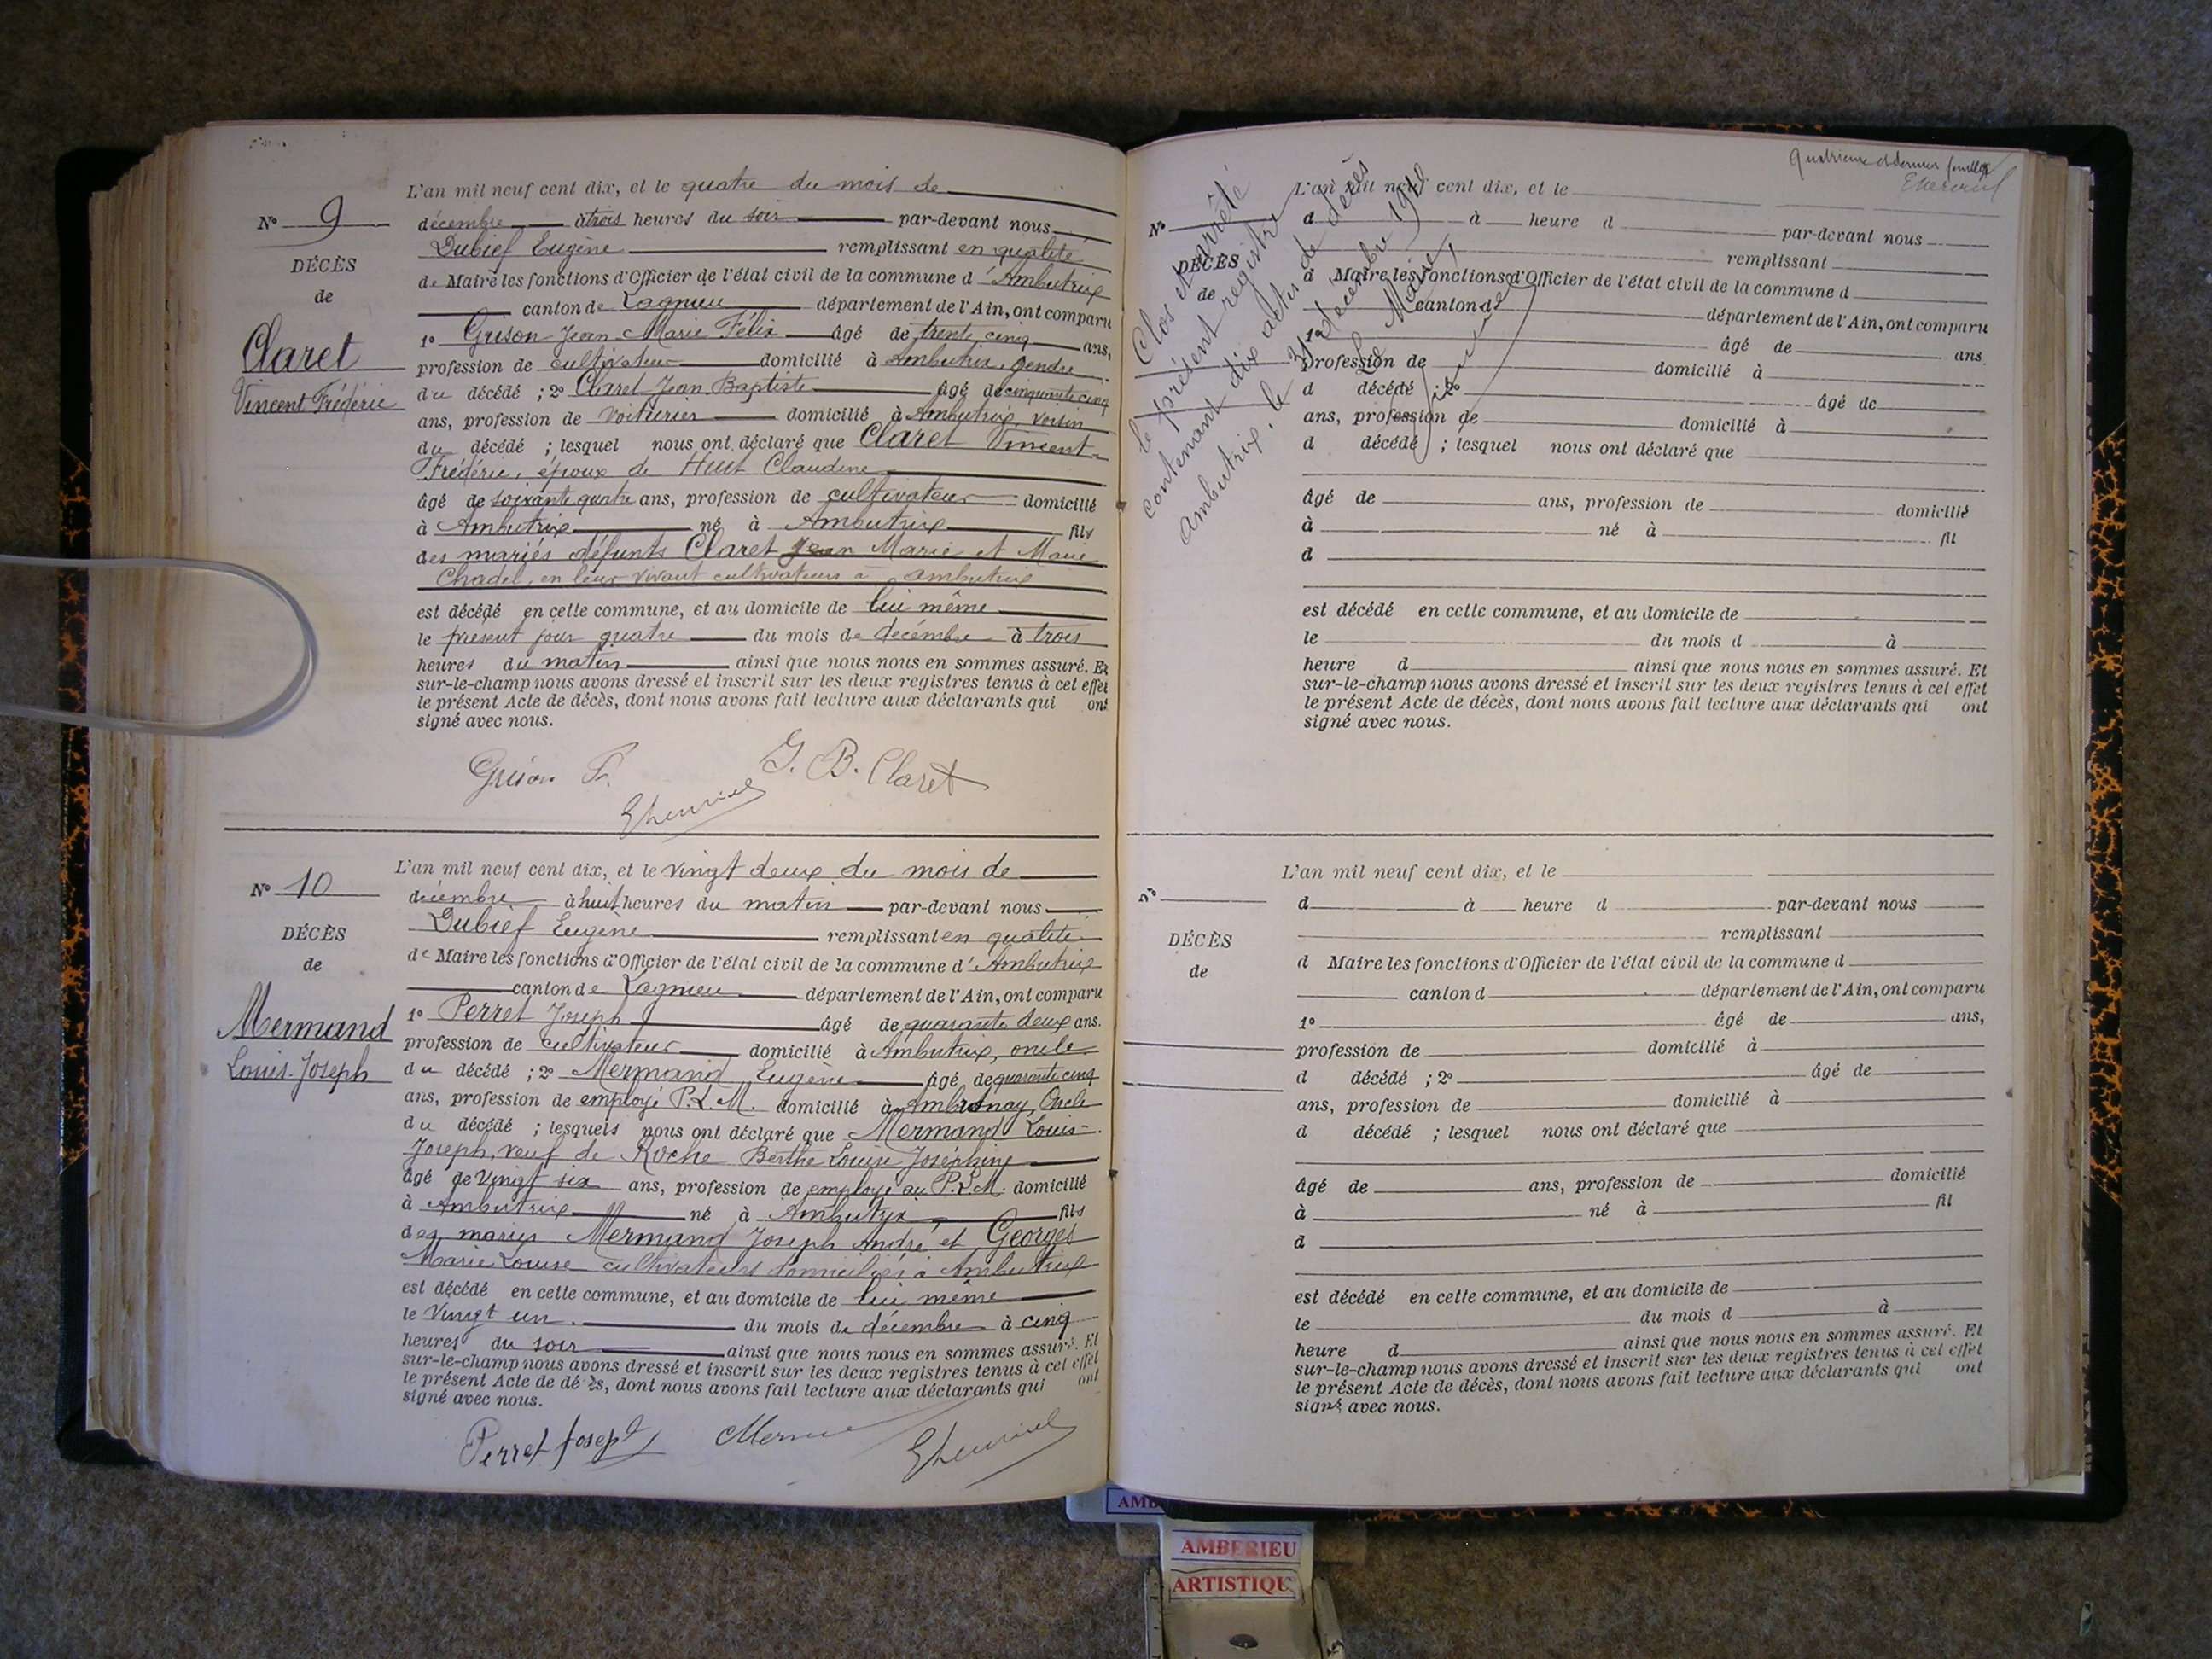 L'an mil neuf cent dix, et le quatre du mois de
N° 9
décembre à trois heures du soir par-devant nous
Dubief Eugène remplissant en qualité
DÉCÈS
de Maire les fonctions d'Officier de l'état civil de la commune d'Ambutrix
de
canton de Lagnieu département de l'Ain, ont comparu
1° Guison Jean Marie Félix âgé de trente cinq ans,
Claret
profession de cultivateur domicilié à Ambutrix, gendre
Vincent Frédéric
du décédé ; 2° Claret Jean Baptiste âgé de cinquante cinq
ans, profession de voiturier domicilié à Ambutrix, voisin
du décédé ; lesquel nous ont déclaré que Claret Vincent-
Frédéric, époux de Claudine
âgé de soixante quatre ans, profession de cultivateur domicilié
à Ambutrix né à Ambutrix fils
des mariés défunts Claret Jean Marie et Marie
Chadel, en leur vivant cultivateurs à Ambutrix
est décédé en cette commune, et au domicile de lui même
le présent jour quatre du mois de décembre à trois
heures du matin ainsi que nous nous en sommes assuré. Et
sur-le-champ nous avons dressé et inscrit sur les deux registres tenus à cet effet
le présent Acte de décès, dont nous avons fait lecture aux déclarants qui ont
signé avec nous.
Guison F.
J. B. Claret
L'an mil neuf cent dix, et le vingt deux du mois de
N° 10
décembre à huit heures du matin par-devant nous
Dubief Eugène remplissant en qualité
DÉCÈS
de Maire les fonctions d'Officier de l'état civil de la commune d'Ambutrix
de
canton de Lagnieu département de l'Ain, ont comparu
1° Perret Joseph âgé de quarante deux ans.
Mermand
profession de cultivateur domicilié à Ambutrix, oncle
Louis-Joseph
du décédé ; 2° Mermand Eugène âgé de quarante cinq
ans, profession de employé P.L.M. domicilié à Ambronay, Oncle
du décédé ; lesquels nous ont déclaré que Mermand Louis-
Joseph, veuf de Roche Berthe Louise Joséphine
âgé de Vingt six ans, profession de employé au P.L.M. domicilié
à Ambutrix né à Ambutrix fils
des mariés Mermand Joseph André et Georges
Marie Louise cultivateurs domiciliés à Ambutrix
est décédé en cette commune, et au domicile de lui même
le Vingt un du mois de décembre à cinq
heures du soir ainsi que nous nous en sommes assuré. Et
sur-le-champ nous avons dressé et inscrit sur les deux registres tenus à cet effet
le présent Acte de décès, dont nous avons fait lecture aux déclarants qui ont
signé avec nous.
Perret Joseph
Quatrième et dernier feuillet
Clos et arrêté
le présent registre
contenant dix actes de décès
Ambutrix, le 31 décembre 1910
Le Maire,
L'an mil neuf cent dix, et le
N°
d à heure d par-devant nous
remplissant
DÉCÈS
d Maire les fonctions d'Officier de l'état civil de la commune d
de
canton d département de l'Ain, ont comparu
1° âgé de ans
profession de domicilié à
d décédé ; 2° âgé de
ans, profession de domicilié à
d décédé ; lesquel nous ont déclaré que
âgé de ans, profession de domicilié
à né à fil
d
est décédé en cette commune, et au domicile de
le du mois d à
heure d ainsi que nous nous en sommes assuré. Et
sur-le-champ nous avons dressé et inscrit sur les deux registres tenus à cet effet
le présent Acte de décès, dont nous avons fait lecture aux déclarants qui ont
signé avec nous.
L'an mil neuf cent dix, et le
N°
d à heure d par-devant nous
remplissant
DÉCÈS
d Maire les fonctions d'Officier de l'état civil de la commune d
de
canton d département de l'Ain, ont comparu
1° âgé de ans,
profession de domicilié à
d décédé ; 2° âgé de
ans, profession de domicilié à
d décédé ; lesquel nous ont déclaré que
âgé de ans, profession de domicilié
à né à fil
d
est décédé en cette commune, et au domicile de
le du mois d à
heure d ainsi que nous nous en sommes assuré. Et
sur-le-champ nous avons dressé et inscrit sur les deux registres tenus à cet effet
le présent Acte de décès, dont nous avons fait lecture aux déclarants qui ont
signé avec nous.
AMB
AMBERIEU
ARTISTIQU